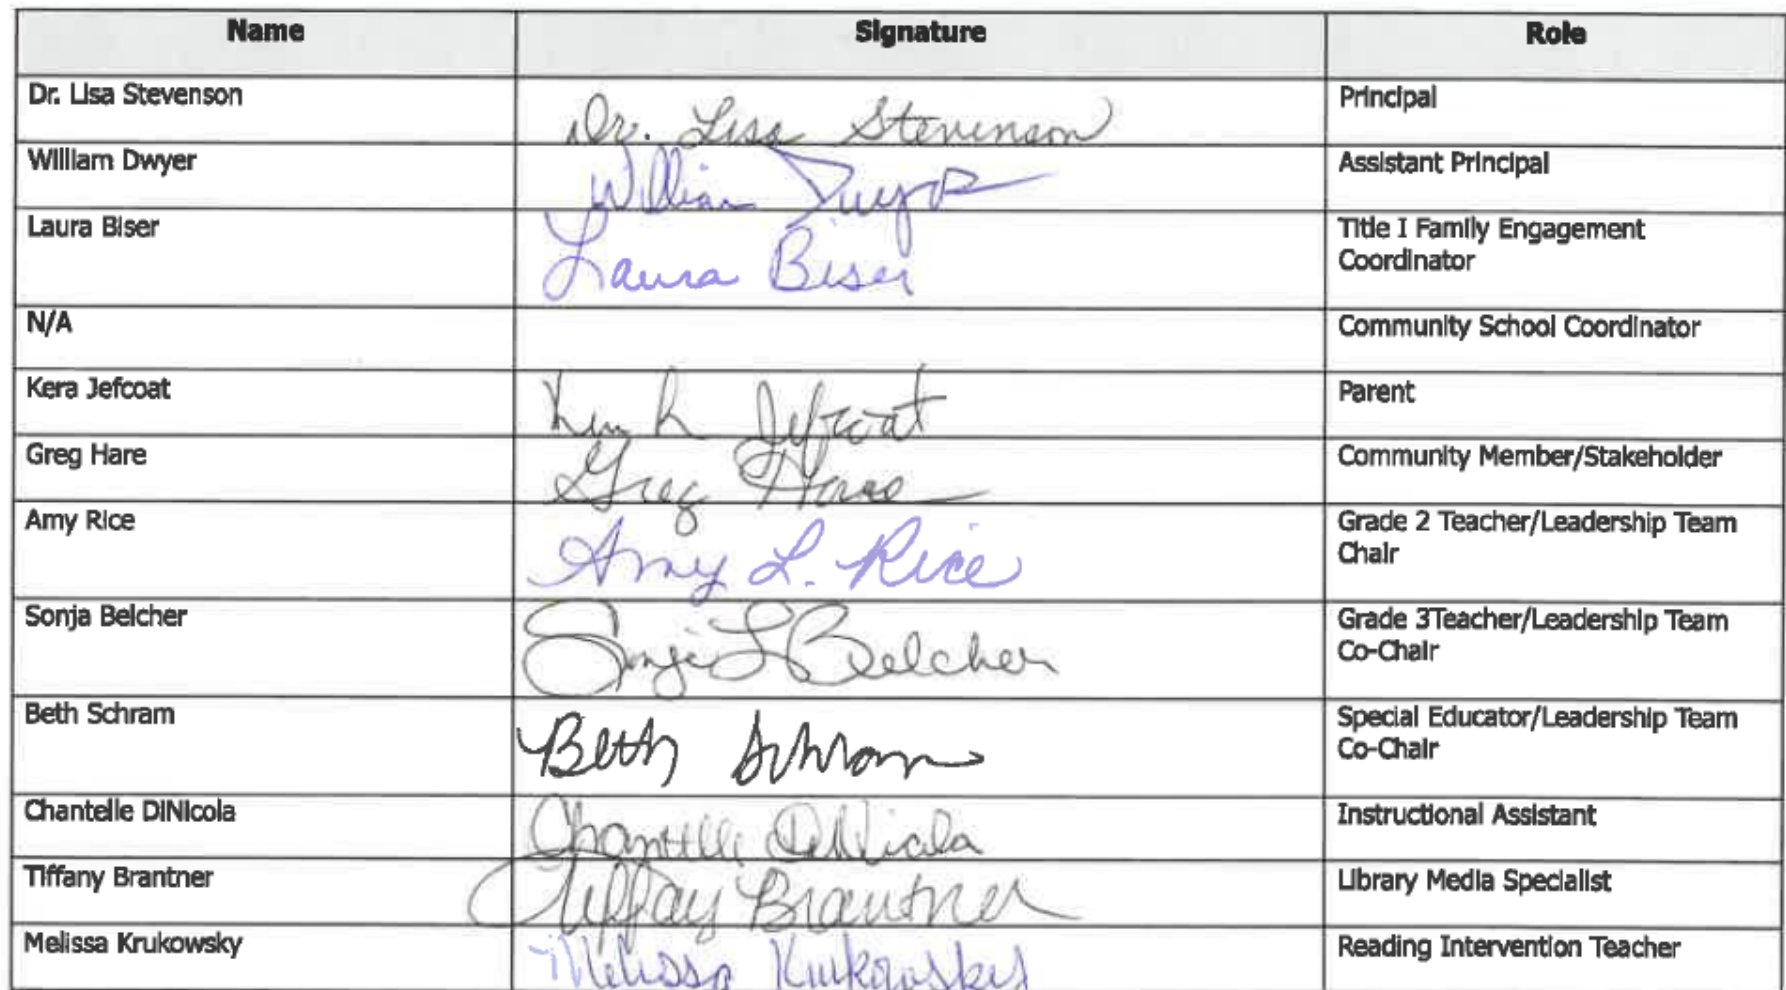 Name Signature Role
Dr. Lisa Stevenson Dr. Lisa Stevenson Principal
William Dwyer William Dwyer Assistant Principal
Laura Biser Laura Biser Title I Family Engagement
Coordinator
N/A Community School Coordinator
Kera Jefcoat Jefcoat Parent
Greg Hare Greg Hare Community Member/Stakeholder
Amy Rice Amy L. Rice Grade 2 Teacher/Leadership Team
Chair
Sonja Belcher Sonja L Belcher Grade 3Teacher/Leadership Team
Co-Chair
Beth Schram Beth Schram Special Educator/Leadership Team
Co-Chair
Chantelle DiNicola Chantelle DiNicola Instructional Assistant
Tiffany Brantner Tiffany Brantner Library Media Specialist
Melissa Krukowsky Melissa Krukowsky Reading Intervention Teacher